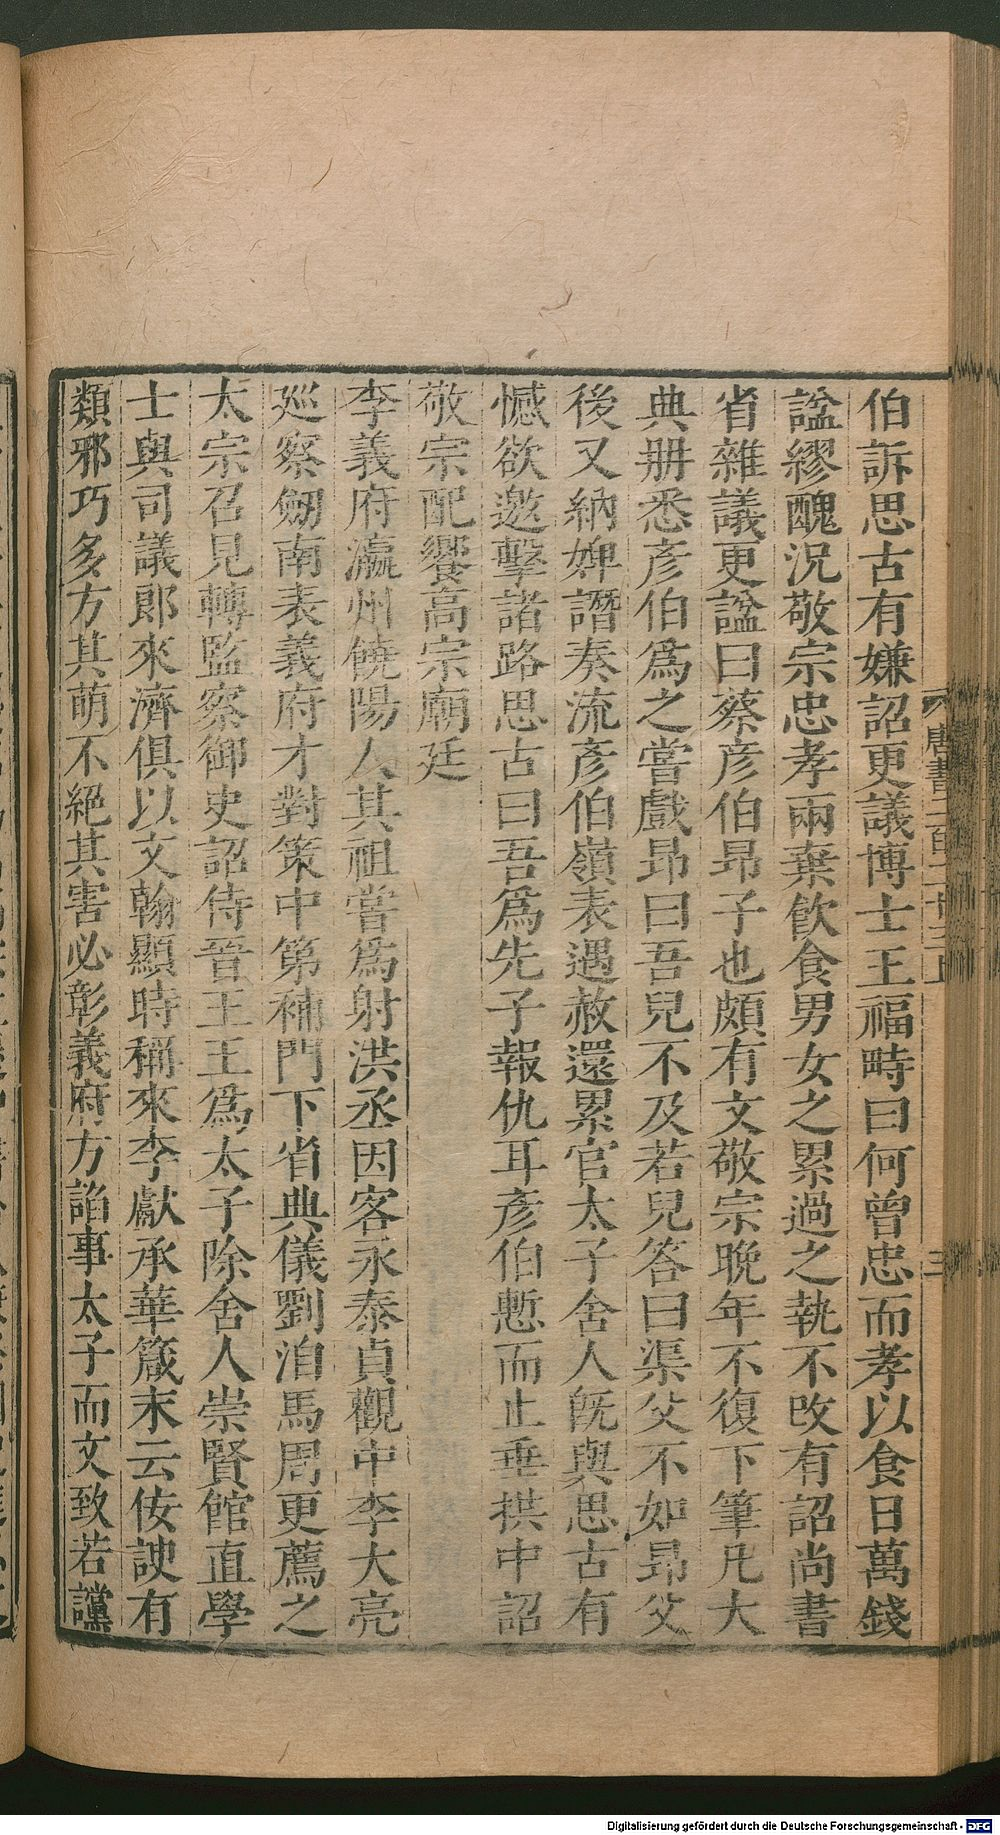 伯訴思古有嫌詔更議博士王福畤曰何曾忠而孝以食日萬錢
諡繆醜況敬宗忠孝兩棄飲食男女之累過之執不改有詔尚書
省雜議更諡曰蔡彥伯昻子也頗有文敬宗晚年不復下筆凡大
典册悉彥伯爲之嘗戲昻曰吾兒不及若兒答曰渠父不如昻父
後又納婢譖奏流彥伯嶺表遇赦還累官太子舍人旣與思古有
憾欲邀擊諸路思古曰吾爲先子報仇耳彥伯慙而止垂拱中詔
敬宗配饗高宗廟廷
李義府瀛州饒陽人其祖嘗爲射洪丞因客永泰貞觀中李大亮
巡察劒南表義府才對策中第補門下省典儀劉洎馬周更薦之
太宗召見轉監察御史詔侍晉王王爲太子除舍人崇賢館直學
士與司議郎來濟俱以文翰顯時稱來李獻承華箴末云佞諛有
類邪巧多方其萌不絕其害必彰義府方諂事太子而文致若讜
唐書二百二十三上
三
Digitalisierung gefördert durch die Deutsche Forschungsgemeinschaft - DFG